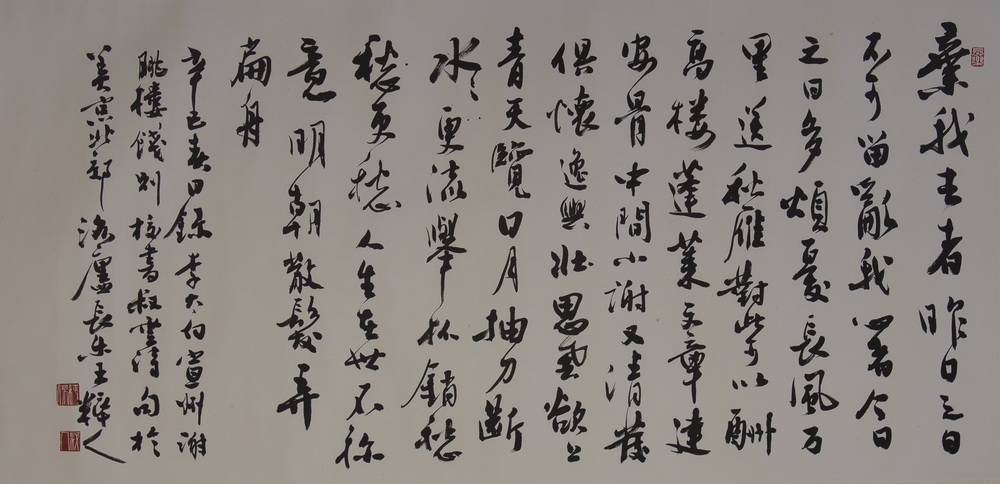 棄我去者昨日之日
不可留亂我心者今日
之日多煩憂長風万
里送秋雁對此可以酣
高楼蓬萊文章建
安骨中間小謝又清發
俱懷逸興壯思飛欲上
青天覽日月抽刀斷
水々更流舉杯銷愁
愁更愁人生在世不称
意明朝散髮弄
扁舟
辛巳春日錄李太白宣州謝
眺樓餞別校書叔雲詩句於
美京北郊洛廬長樂王人